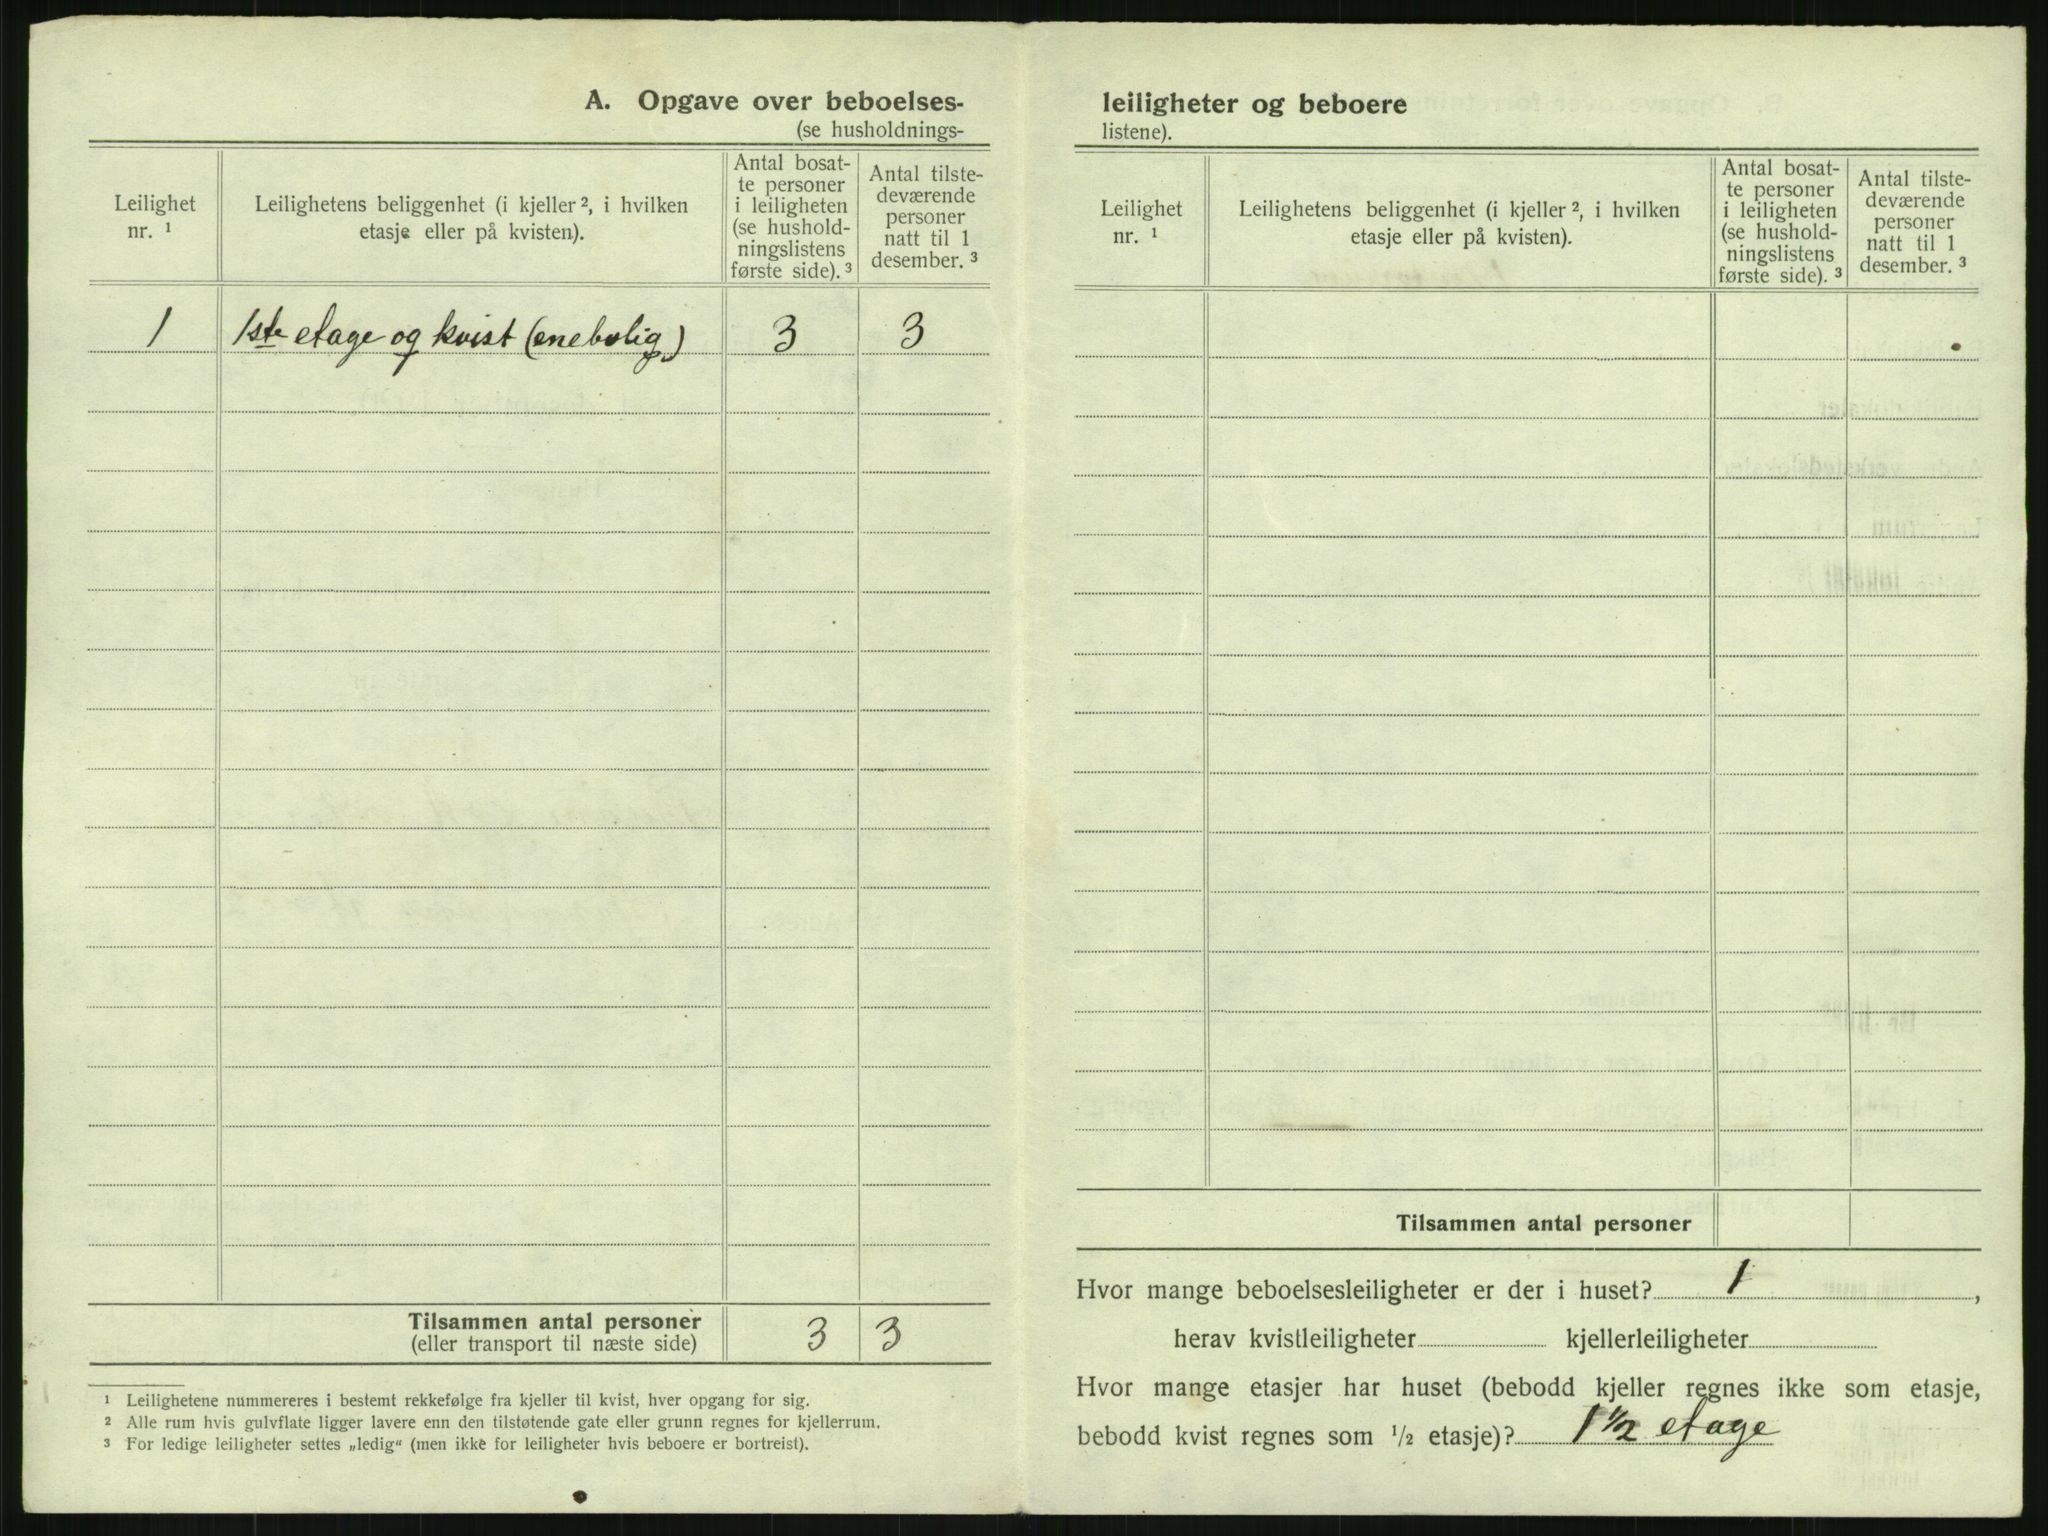 A. Opgave over beboelses-
(se husholdnings-
Leilighet
nr. 1
Leilighetens beliggenhet (i kjeller 2, i hvilken
etasje eller på kvisten).
Antal bosat-
te personer
i leiligheten
(se hushold-
ningslistens
første side). 3
Antal tilste-
deværende
personer
natt til 1
desember. 3
1 1ste etage og kvist (enebolig) 3 3
Tilsammen antal personer
(eller transport til næste side)
3 3
1 Leilighetene nummereres i bestemt rekkefølge fra kjeller til kvist, hver opgang for sig.
2 Alle rum hvis gulvflate ligger lavere enn den tilstøtende gate eller grunn regnes for kjellerrum.
3 For ledige leiligheter settes „ledig“ (men ikke for leiligheter hvis beboere er bortreist).
leiligheter og beboere
listene).
Leilighet
nr. 1
Leilighetens beliggenhet (i kjeller 2, i hvilken
etasje eller på kvisten).
Antal bosat-
te personer
i leiligheten
(se hushold-
ningslistens
første side). 3
Antal tilste-
deværende
personer
natt til 1
desember. 3
Tilsammen antal personer
Hvor mange beboelsesleiligheter er der i huset? 1,
herav kvistleiligheter kjellerleiligheter
Hvor mange etasjer har huset (bebodd kjeller regnes ikke som etasje,
bebodd kvist regnes som 1/2 etasje)? 1 1/2 etage